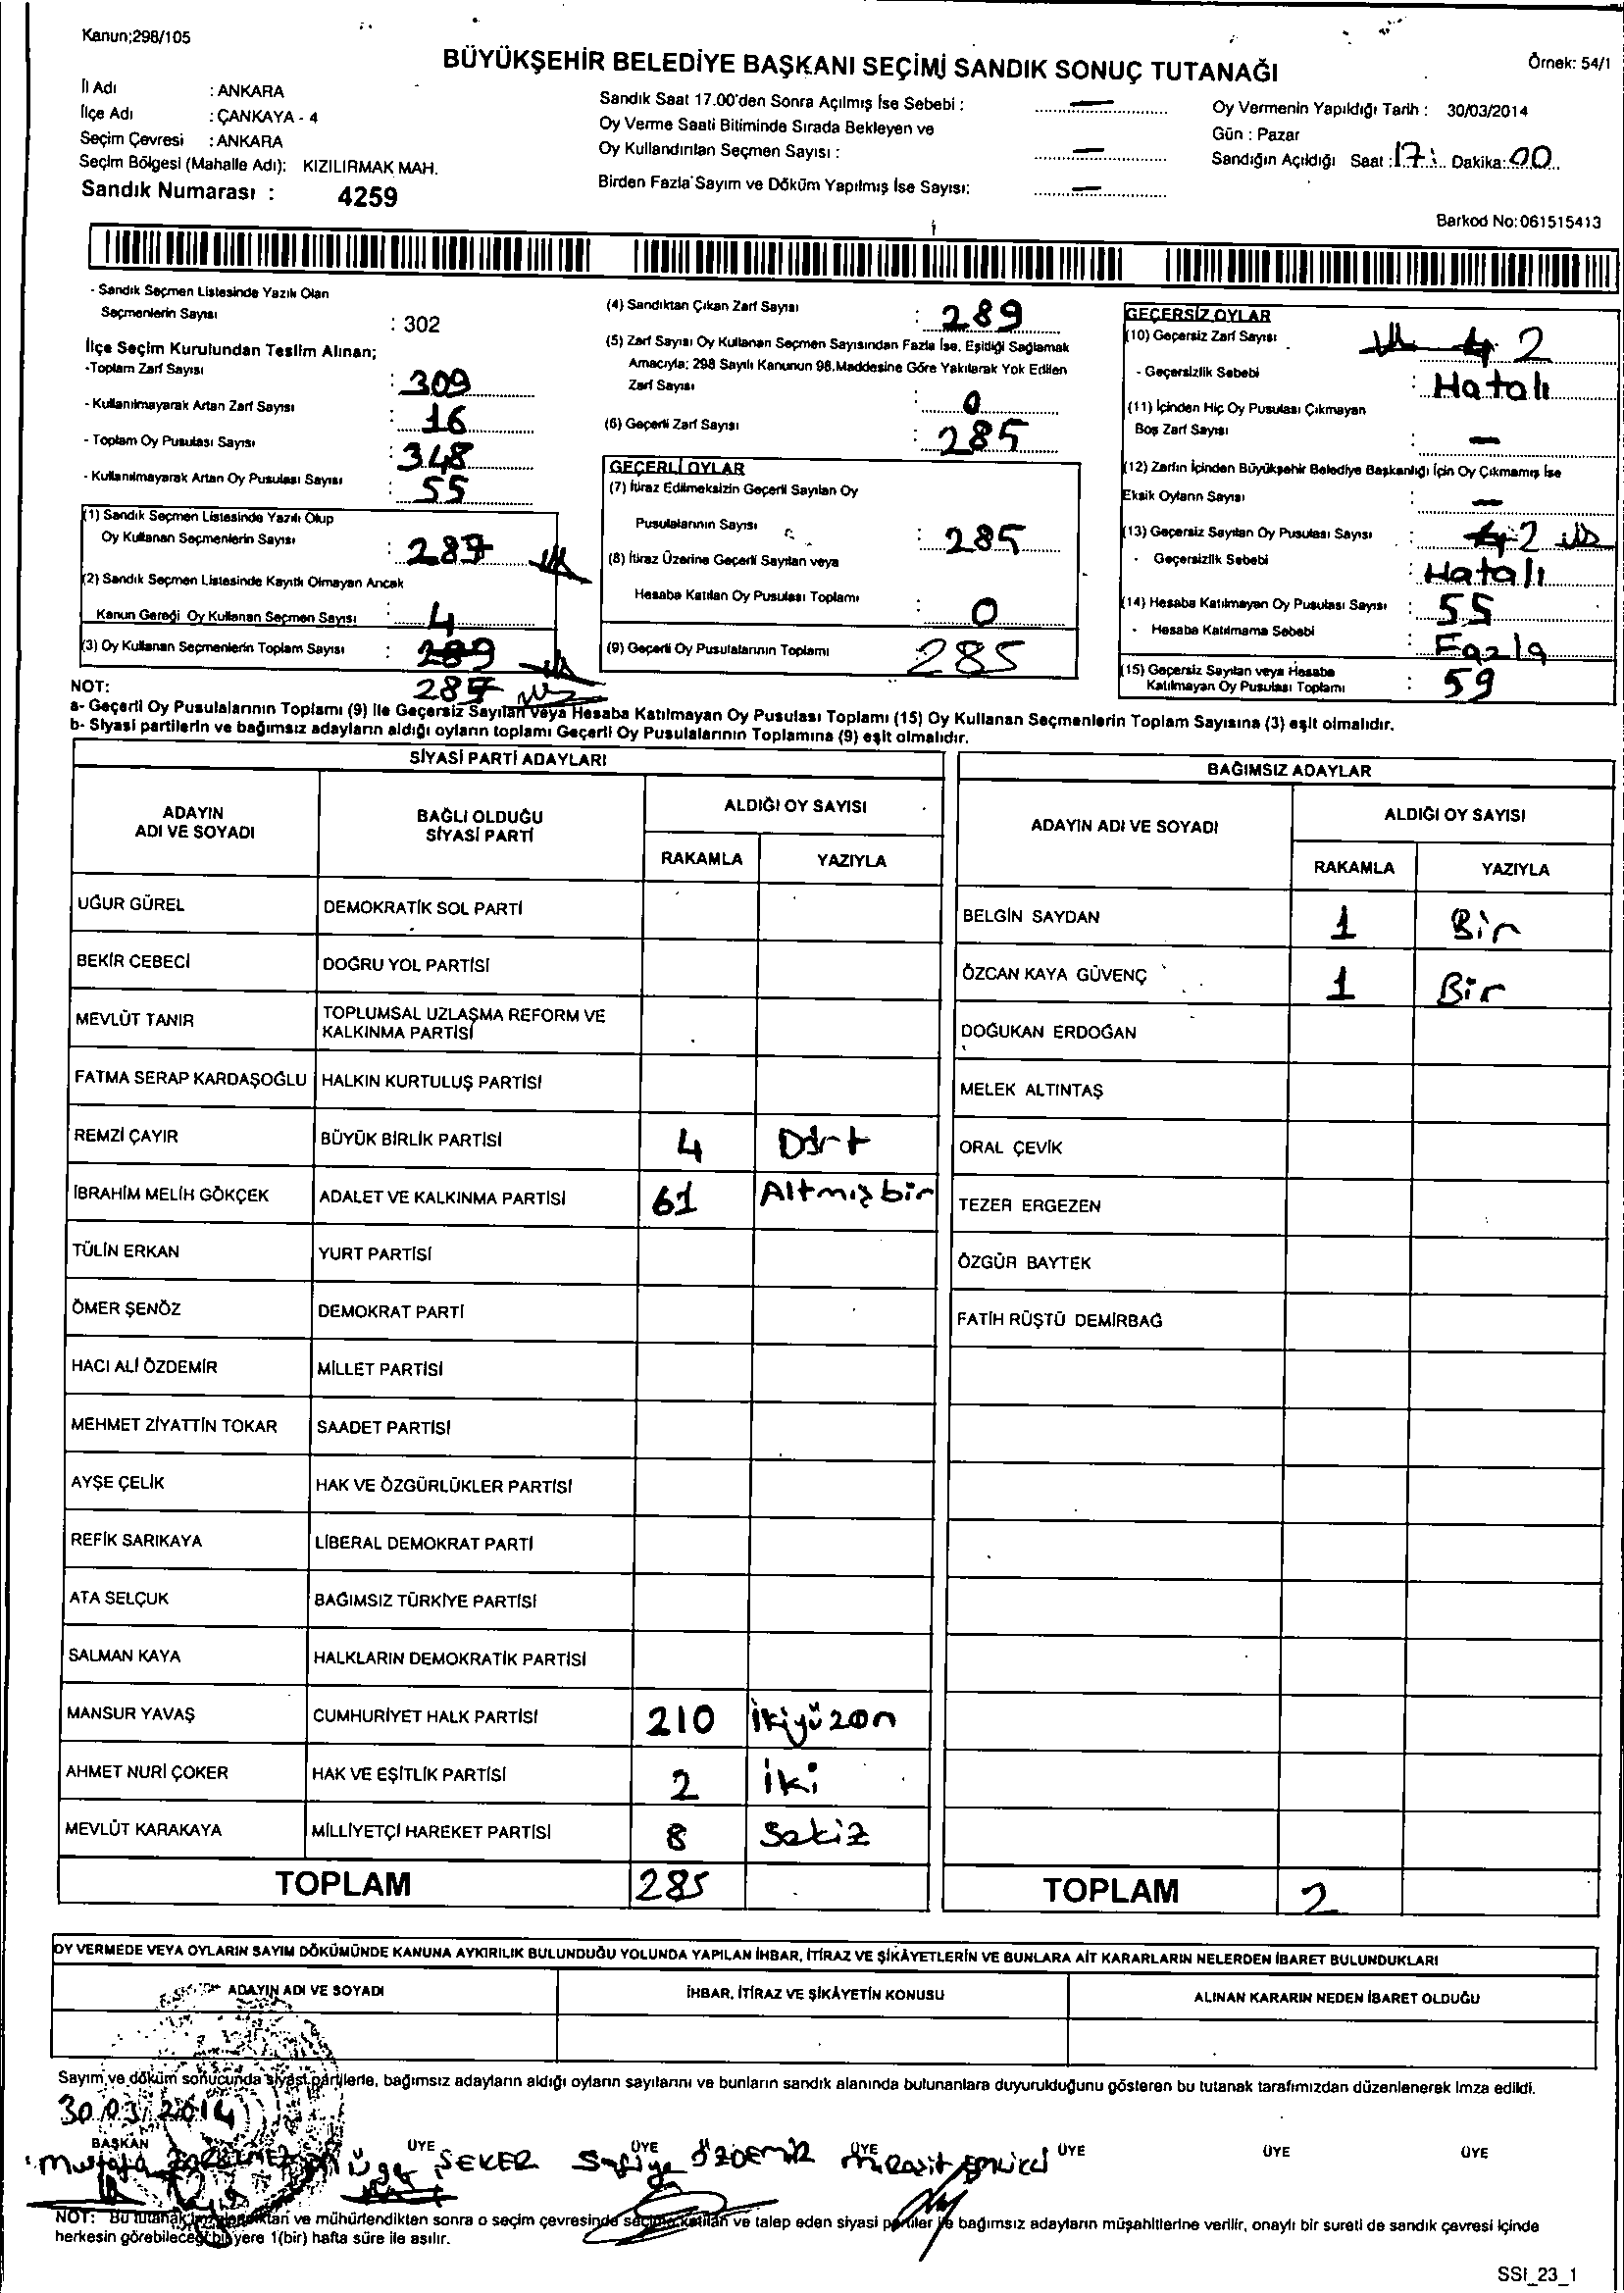 Kanun;298/105
BÜYÜKŞEHİR BELEDİYE BAŞKANI SEÇİMİ SANDIK SONUÇ TUTANAĞI
Örnek: 54/1
İl Adı : ANKARA
İlçe Adı : ÇANKAYA - 4
Seçim Çevresi : ANKARA
Seçim Bölgesi (Mahalle Adı): KIZILIRMAK MAH.
Sandık Numarası : 4259
Sandık Saat 17.00'den Sonra Açılmış İse Sebebi : —
Oy Verme Saati Bitiminde Sırada Bekleyen ve
Oy Kullandırılan Seçmen Sayısı : —
Birden Fazla Sayım ve Döküm Yapılmış İse Sayısı: —
Oy Vermenin Yapıldığı Tarih : 30/03/2014
Gün : Pazar
Sandığın Açıldığı Saat : 17 : Dakika: 00
Barkod No:061515413
- Sandık Seçmen Listesinde Yazılı Olan
Seçmenlerin Sayısı : 302
İlçe Seçim Kurulundan Teslim Alınan;
-Toplam Zarf Sayısı : 309
- Kullanılmayarak Artan Zarf Sayısı : 16
- Toplam Oy Pusulası Sayısı : 348
- Kullanılmayarak Artan Oy Pusulası Sayısı : 55
(1) Sandık Seçmen Listesinde Yazılı Olup
Oy Kullanan Seçmenlerin Sayısı : 287
(2) Sandık Seçmen Listesinde Kayıtlı Olmayan Ancak
Kanun Gereği Oy Kullanan Seçmen Sayısı : 4
(3) Oy Kullanan Seçmenlerin Toplam Sayısı : 289
287
(4) Sandıktan Çıkan Zarf Sayısı : 289
(5) Zarf Sayısı Oy Kullanan Seçmen Sayısından Fazla İse, Eşitliği Sağlamak
Amacıyla; 298 Sayılı Kanunun 98.Maddesine Göre Yakılarak Yok Edilen
Zarf Sayısı : 0
(6) Geçerli Zarf Sayısı : 285
GEÇERLİ OYLAR
(7) İtiraz Edilmeksizin Geçerli Sayılan Oy
Pusulalarının Sayısı : 285
(8) İtiraz Üzerine Geçerli Sayılan veya
Hesaba Katılan Oy Pusulası Toplamı : 0
(9) Geçerli Oy Pusulalarının Toplamı 285
GEÇERSİZ OYLAR
(10) Geçersiz Zarf Sayısı 4 2
- Geçersizlik Sebebi : Hatalı
(11) İçinden Hiç Oy Pusulası Çıkmayan
Boş Zarf Sayısı : —
(12) Zarfın İçinden Büyükşehir Belediye Başkanlığı İçin Oy Çıkmamış İse
Eksik Oyların Sayısı : —
(13) Geçersiz Sayılan Oy Pusulası Sayısı : 4 2
- Geçersizlik Sebebi : Hatalı
(14) Hesaba Katılmayan Oy Pusulası Sayısı : 55
- Hesaba Katılmama Sebebi : Fazla
(15) Geçersiz Sayılan veya Hesaba
Katılmayan Oy Pusulası Toplamı : 59
NOT:
a- Geçerli Oy Pusulalarının Toplamı (9) ile Geçersiz Sayılan veya Hesaba Katılmayan Oy Pusulası Toplamı (15) Oy Kullanan Seçmenlerin Toplam Sayısına (3) eşit olmalıdır.
b- Siyasi partilerin ve bağımsız adayların aldığı oyların toplamı Geçerli Oy Pusulalarının Toplamına (9) eşit olmalıdır.
SİYASİ PARTİ ADAYLARI
ADAYIN ADI VE SOYADI
BAĞLI OLDUĞU SİYASİ PARTİ
ALDIĞI OY SAYISI
RAKAMLA YAZIYLA
UĞUR GÜREL DEMOKRATİK SOL PARTİ
BEKİR CEBECİ DOĞRU YOL PARTİSİ
MEVLÜT TANIR TOPLUMSAL UZLAŞMA REFORM VE
KALKINMA PARTİSİ
FATMA SERAP KARDAŞOĞLU HALKIN KURTULUŞ PARTİSİ
REMZİ ÇAYIR BÜYÜK BİRLİK PARTİSİ 4 Dört
İBRAHİM MELİH GÖKÇEK ADALET VE KALKINMA PARTİSİ 61 Altmışbir
TÜLİN ERKAN YURT PARTİSİ
ÖMER ŞENÖZ DEMOKRAT PARTİ
HACI ALİ ÖZDEMİR MİLLET PARTİSİ
MEHMET ZİYATTİN TOKAR SAADET PARTİSİ
AYŞE ÇELİK HAK VE ÖZGÜRLÜKLER PARTİSİ
REFİK SARIKAYA LİBERAL DEMOKRAT PARTİ
ATA SELÇUK BAĞIMSIZ TÜRKİYE PARTİSİ
SALMAN KAYA HALKLARIN DEMOKRATİK PARTİSİ
MANSUR YAVAŞ CUMHURİYET HALK PARTİSİ 210 İkiyüzon
AHMET NURİ ÇOKER HAK VE EŞİTLİK PARTİSİ 2 İki
MEVLÜT KARAKAYA MİLLİYETÇİ HAREKET PARTİSİ 8 Sekiz
TOPLAM 285
BAĞIMSIZ ADAYLAR
ADAYIN ADI VE SOYADI
ALDIĞI OY SAYISI
RAKAMLA YAZIYLA
BELGİN SAYDAN 1 Bir
ÖZCAN KAYA GÜVENÇ 1 Bir
DOĞUKAN ERDOĞAN
MELEK ALTINTAŞ
ORAL ÇEVİK
TEZER ERGEZEN
ÖZGÜR BAYTEK
FATİH RÜŞTÜ DEMİRBAĞ
TOPLAM 2
OY VERMEDE VEYA OYLARIN SAYIM DÖKÜMÜNDE KANUNA AYKIRILIK BULUNDUĞU YOLUNDA YAPILAN İHBAR, İTİRAZ VE ŞİKÂYETLERİN VE BUNLARA AİT KARARLARIN NELERDEN İBARET BULUNDUKLARI
ADAYIN ADI VE SOYADI
İHBAR, İTİRAZ VE ŞİKÂYETİN KONUSU
ALINAN KARARIN NEDEN İBARET OLDUĞU
Sayım ve döküm sonucunda siyasi partilerle, bağımsız adayların aldığı oyların sayılarını ve bunların sandık alanında bulunanlara duyurulduğunu gösteren bu tutanak tarafımızdan düzenlenerek imza edildi.
30/03/2014
BAŞKAN ÜYE ÜYE ÜYE ÜYE ÜYE ÜYE
Mustafa ŞEKER Safiye ÖZDEMİR
NOT: Bu tutanak ve mühürlendikten sonra o seçim çevresinde seçime katılan ve talep eden siyasi partiler ile bağımsız adayların müşahitlerine verilir, onaylı bir sureti de sandık çevresi içinde
herkesin görebileceği bir yere 1(bir) hafta süre ile asılır.
SSI_23_1